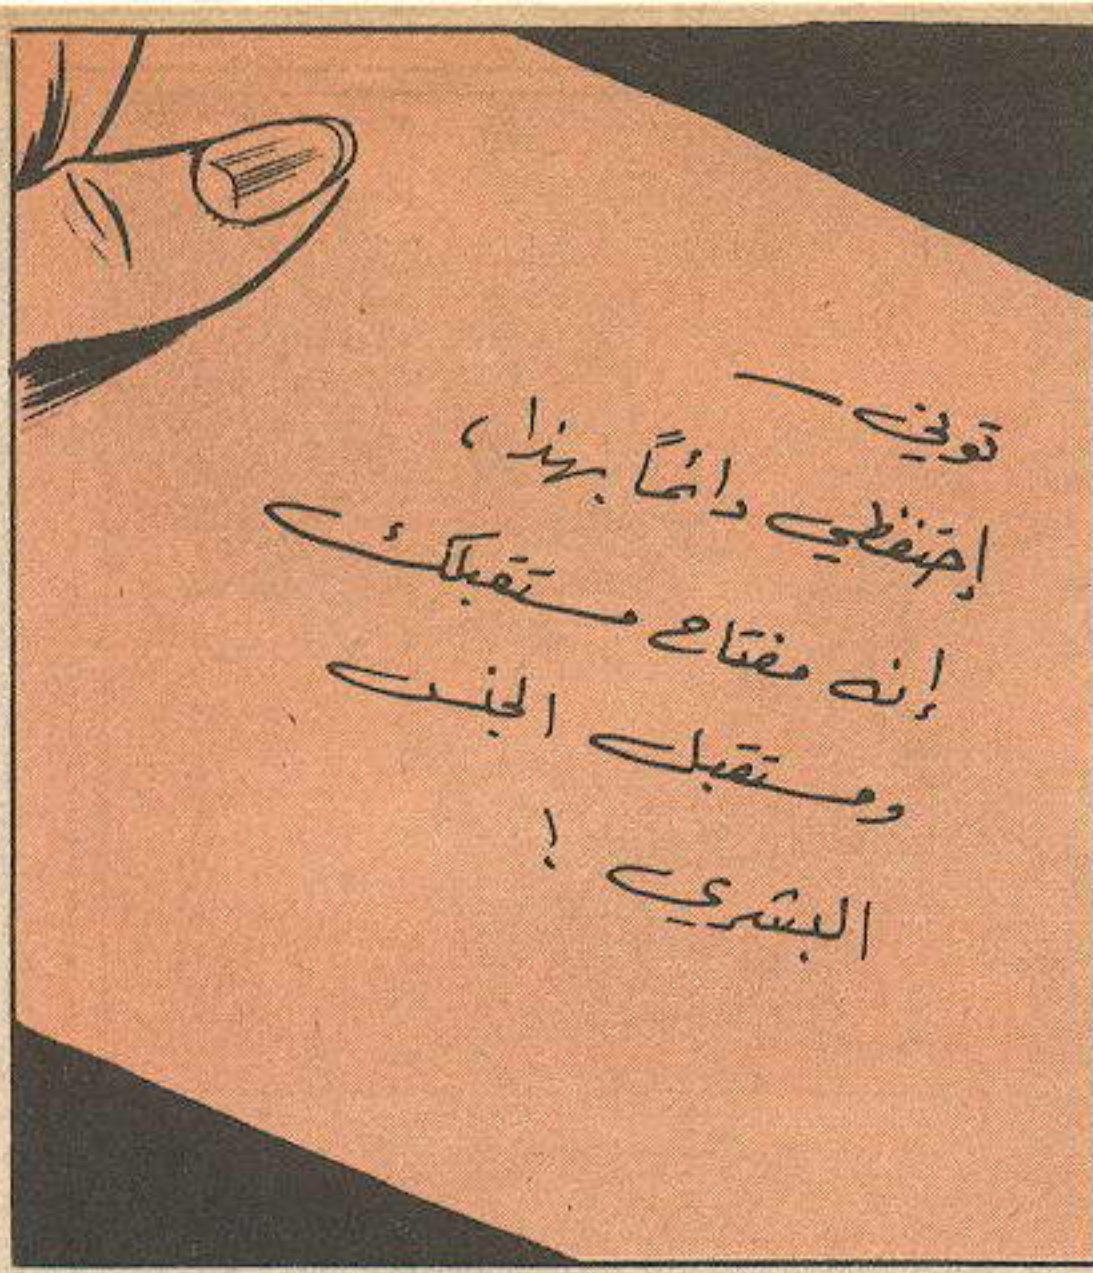 توني -
إحتفظي دائماً بهذا،
إنه مفتاح مستقبلك
ومستقبل الجنس
البشري !